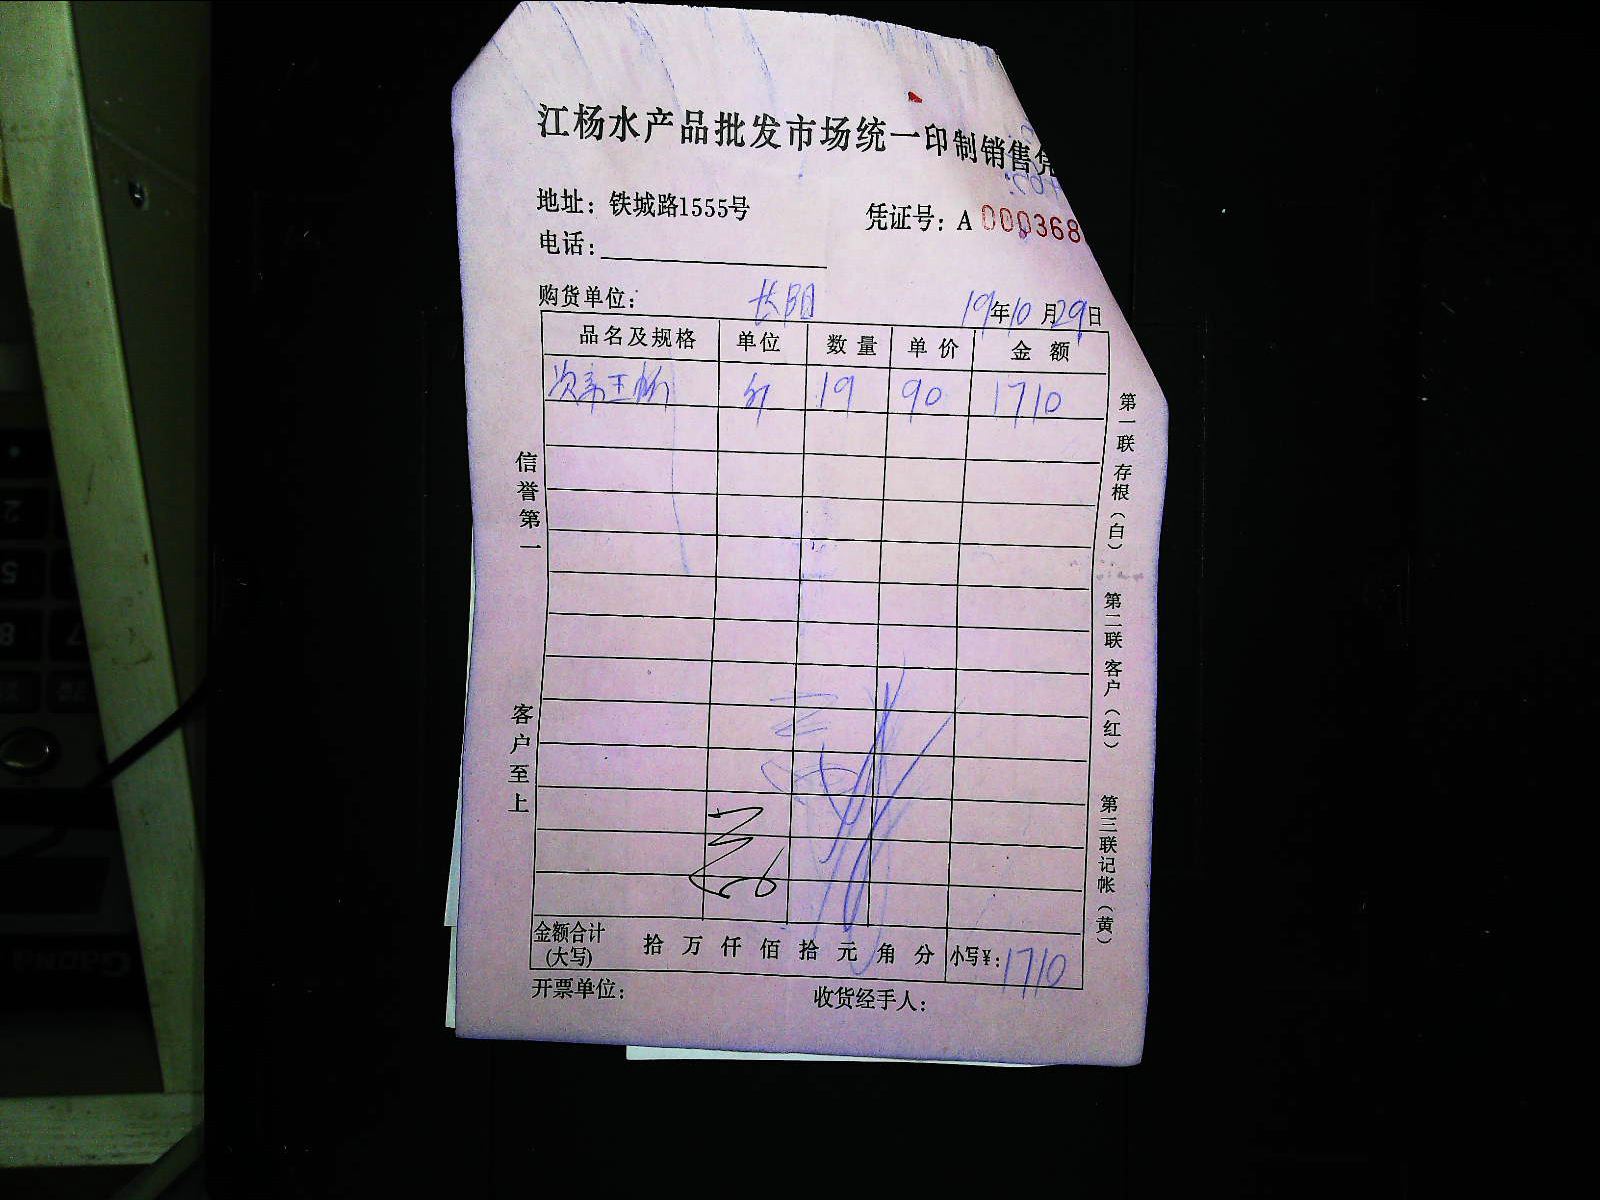 江杨水产品批发市场统一印制销售凭
地址：铁城路1555号
凭证号：A 000368
电话：
购货单位： 长阳
19年10月29日
品名及规格 单位 数量 单价 金额
19 90 1710
信誉第一
客户至上
第一联 存根（白）
第二联 客户（红）
第三联 记帐（黄）
金额合计(大写) 拾 万 仟 佰 拾 元 角 分 小写¥：1710
开票单位： 收货经手人：